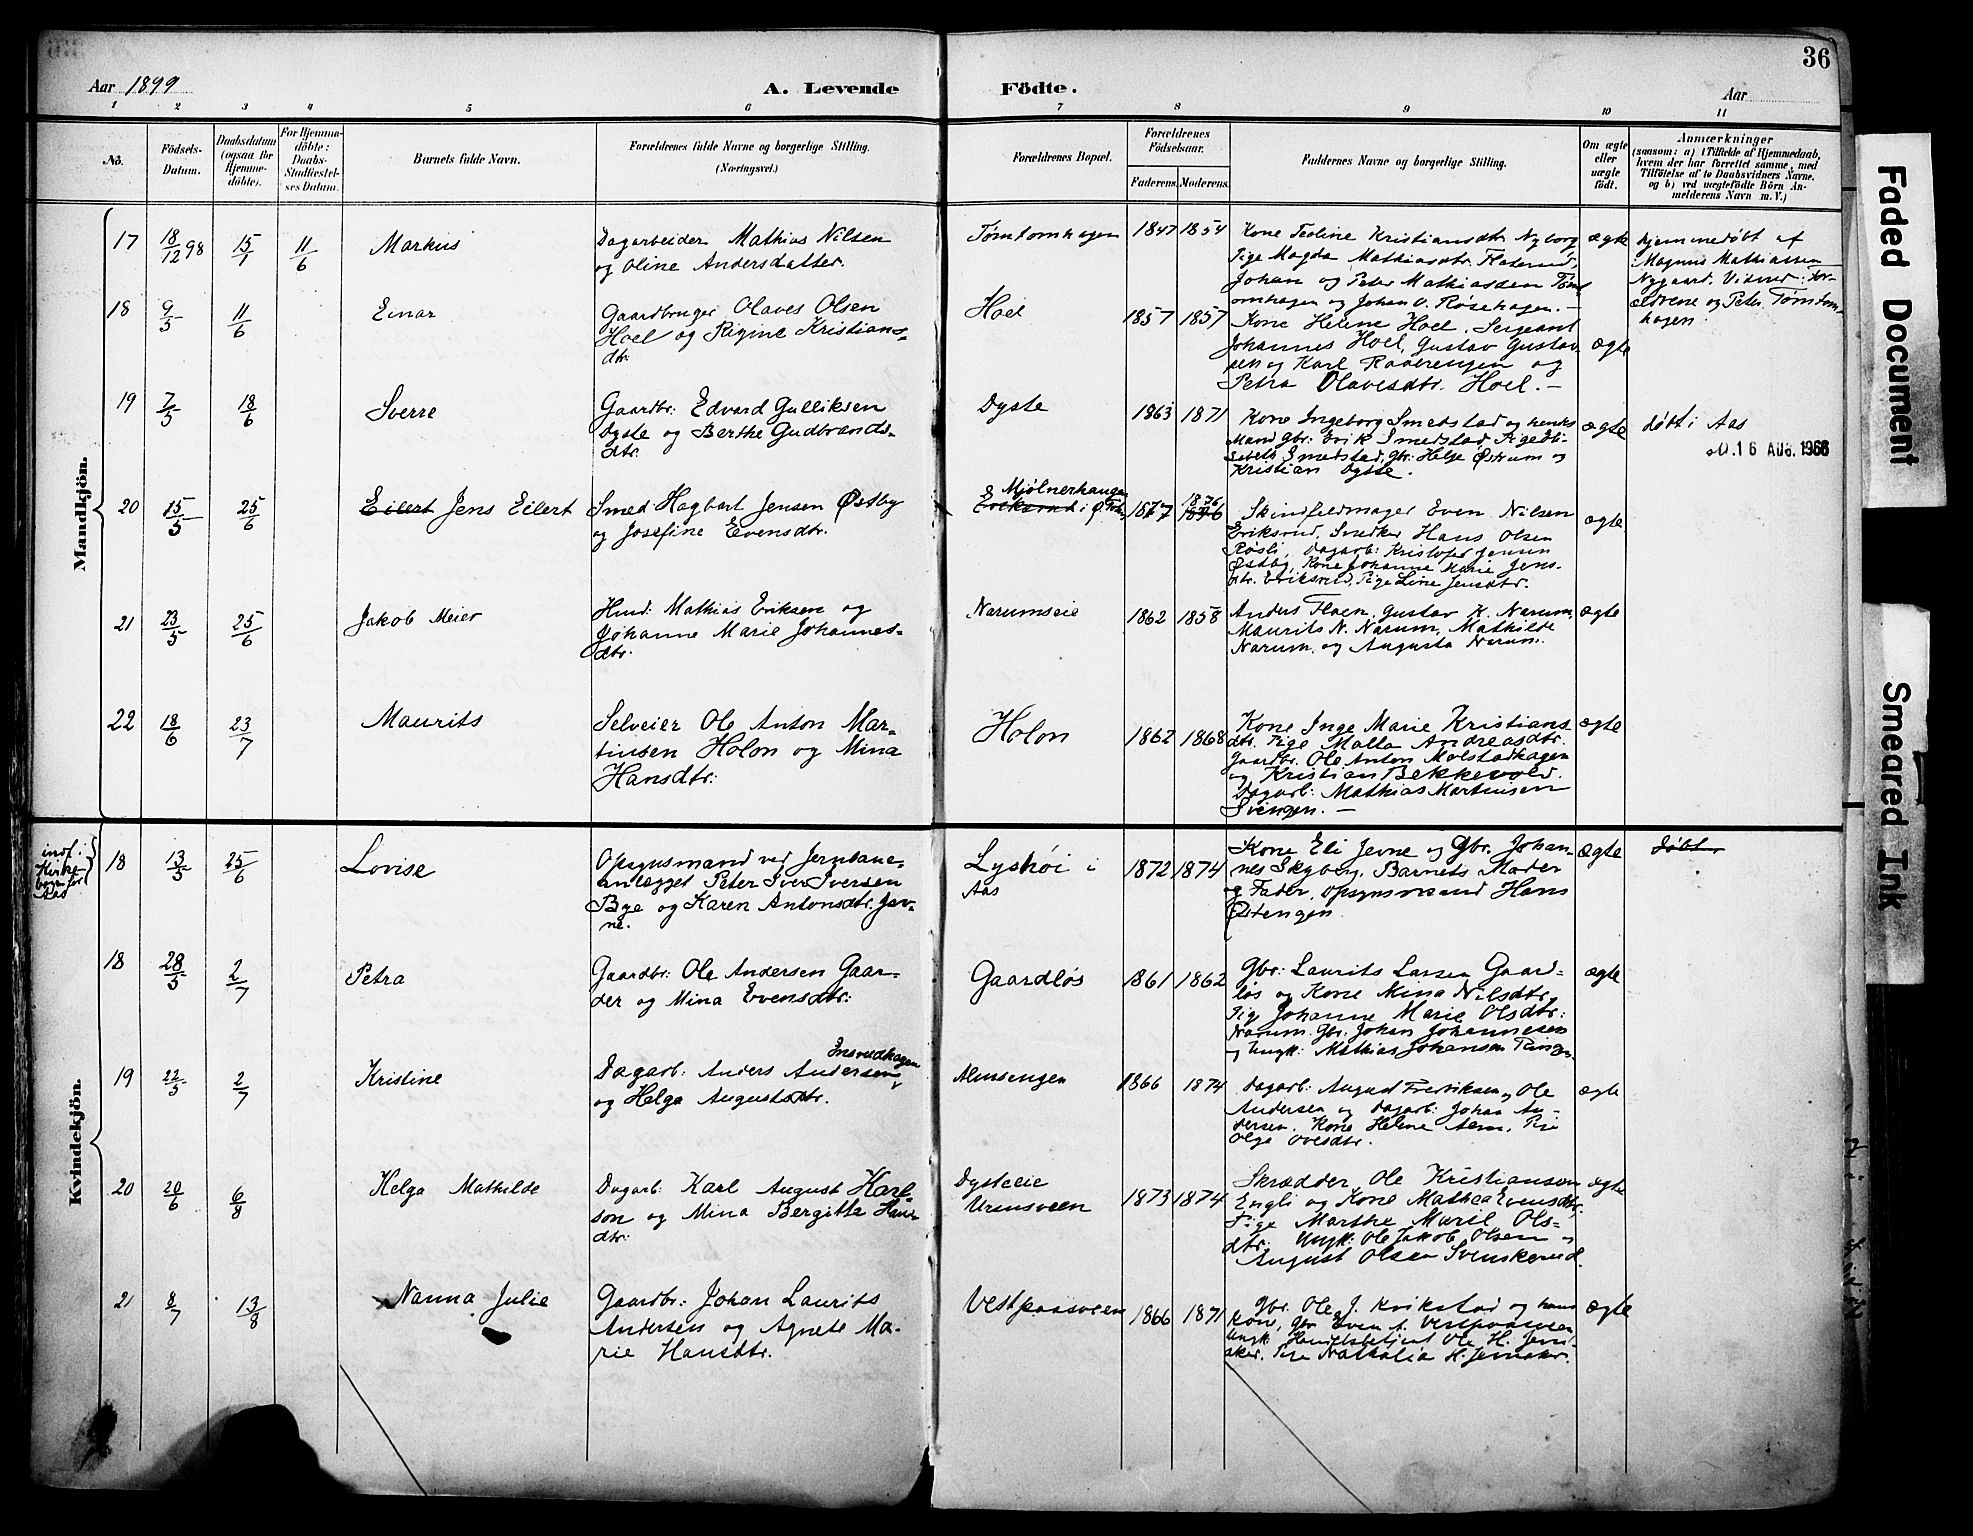 36
Aar 1899
A. Levende Födte.
Aar
1 2 3 4 5 6 7 8 9 10 11
No.
Födsels-Datum.
Daabsdatum (ogsaa for Hjemmedöbte).
For Hjemmedöbte: Daabs-Stadfæstelses Datum.
Barnets fulde Navn.
Forældrenes fulde Navne og borgerlige Stilling. (Næringsvei.)
Forældrenes Bopæl.
Forældrenes Födselsaar.
Faderens. Moderens.
Faddernes Navne og borgerlige Stilling.
Om ægte eller uægte födt.
Anmærkninger
(saasom: a) i Tilfælde af Hjemmedaab, hvem der har forrettet samme, med Tilföielse af to Daabsvidners Navne, og b) ved uægtefödte Börn Anmelderens Navn m. V.)
Mandkjön.
17 18/12 98 15/1 11/6 Markus
Dagarbeider Mathias Nilsen
og Oline Andersdatter.
Tømtomhagen 1847 1854
Kone Teoline Kristiansdtr. Nyborg
Pige Magda Mathiasdtr.
Johan og Peter Mathiasen Tømtomhagen og Johan O. Røsehagen. –
ægte
Hjemmedøbt af
Magnus Mathiassen
Nygaard. Vidner: Forældrene og Peter Tømtomhagen.
18 9/5 11/6 Einar
Gaardbruger Olaves Olsen
Hoel og Regine Kristiansdtr.
Hoel 1857 1857
Kone Helene Hoel, Sergeant
Johannes Hoel, Gustav Gustavsen og Karl og
Petra Olavesdtr. Hoel. –
ægte
19 7/5 18/6 Sverre
Gaardbr: Edvard Gulliksen
Dyste og Berthe Gudbrandsdtr.
Dyste 1863 1871
Kone Ingeborg Smedstad og hendes
Mand gbr: Erik Smedstad, Pige Elisebeth Smedstad, gbr: Helge Østrum og
Kristian Dyste.
ægte
døbt i Aas
16 AUG. 1966
20 15/5 25/6 Eilert Jens Eilert
Smed Hagbart Jensen Østby
og Josefine Evensdtr.
Mjølnerhaugen
Eriksrud i
1877 1876
Skindfeldmager Even Nilsen
Eriksrud, Snedker Hans Olsen
Røsli, Dagarb: Kristofer Jensen
Østby, Kone Johanne Marie Jensdtr. Eriksrud, Pige Line Jensdtr.
ægte
21 23/5 25/6 Jakob Meier
Husd: Mathias Eriksen og
Johanne Marie Johannesdtr.
Narumseie 1862 1858
Anders Floen, Gustav K. Narum,
Maurits N. Narum, Mathilde
Narum, og Augusta Narum.
ægte
22 18/6 23/7 Maurits
Selveier Ole Anton Martinsen Holon og Mina
Hansdtr:
Holon 1862 1868
Kone Inge Marie Kristiansdtr. Pige Malla Andreasdtr.
Gaardbr. Ole Anton Molstadhagen
og Kristian Bekkevold.
Dagarb: Mathias Martinsen
Svingen. –
ægte
Kvindekjön.
indf. i Kirkebogen for Aas
18 13/5 25/6 Lovise
Opsynsmand ved Jernbaneanlægget Peter Iver Iversen
Bye og Karen Antonsdtr. Jevne.
Lyshøi i
Aas
1872 1874
Kone Eli Jevne og Gbr. Johannes Skyberg, Barnets Moder
og Fader, Opsynsmand Hans
Østengen
ægte
Døbt
18 28/5 2/7 Petra
Gaardbr: Ole Andersen Gaarder og Mina Evensdtr:
Gaardløs 1861 1862
Gbr: Laurits Larsen Gaardløs og Kone Mina Nilsdtr,
Pig Johanne Marie Olsdtr:
Narum. Gbr: Johan Johannesen
og Ungk: Mathias Johansen
ægte
19 22/5 2/7 Kristine
Dagarb: Anders Andersen
og Helga Augustsdtr.
1866 1874
Dagarb: August Fredriksen, Ole
Andersen og Dagarb: Johan Andersen, Kone Helene
Olga Ovesdtr.
ægte
20 20/6 6/8 Helga Mathilde
Dagarb: Karl August Karlson og Mina Bergitte Hansdtr:
Dysteeie
Ursusveen
1873 1874
Skrædder Ole Kristiansen
Engli og Kone Mathea Evensdtr,
Pige Marthe Marie Olsdtr: Ungk: Ole Jakob Olsen og
August Olsen Svenskerud.
ægte
21 8/7 13/8 Nanna Julie
Gaardbr: Johan Laurits
Andersen og Agnete Marie Hansdtr.
Vestpaasveen 1866 1871
Gbr. Ole J. Kvikstad og hans
Kone, Gbr Even A. Vestpaasveen
Ungk: Handelsbetjent Ole H. Jevnaker, Pige Nathalia H. Jevnaker.
ægte
Faded Document
Smeared Ink